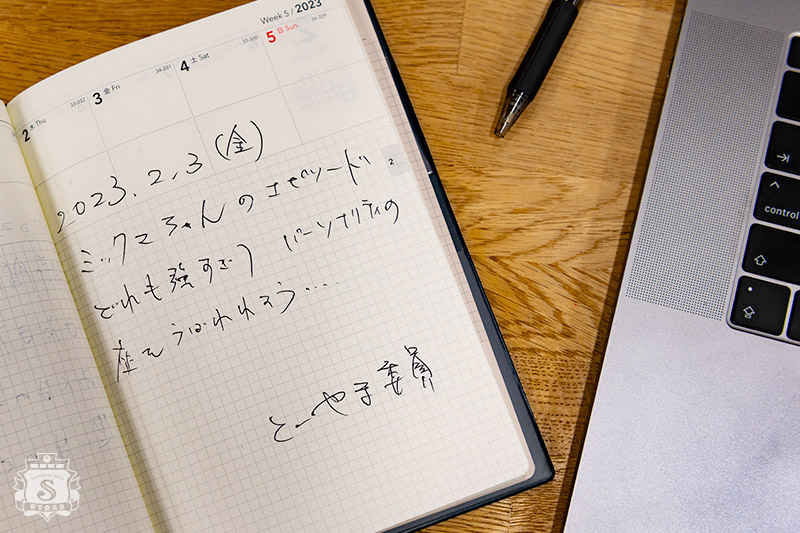 Week 5 / 2023
2 木 Thu 33-332
3 金 Fri 34-331
4 土 Sat 35-330
5 日 Sun 36-329
2
2023.2.3(金)
ミックマちゃんのエピソード
どれも強すぎ) パーソナリティの
座をうばわれそう....
とーやま委員
control
S